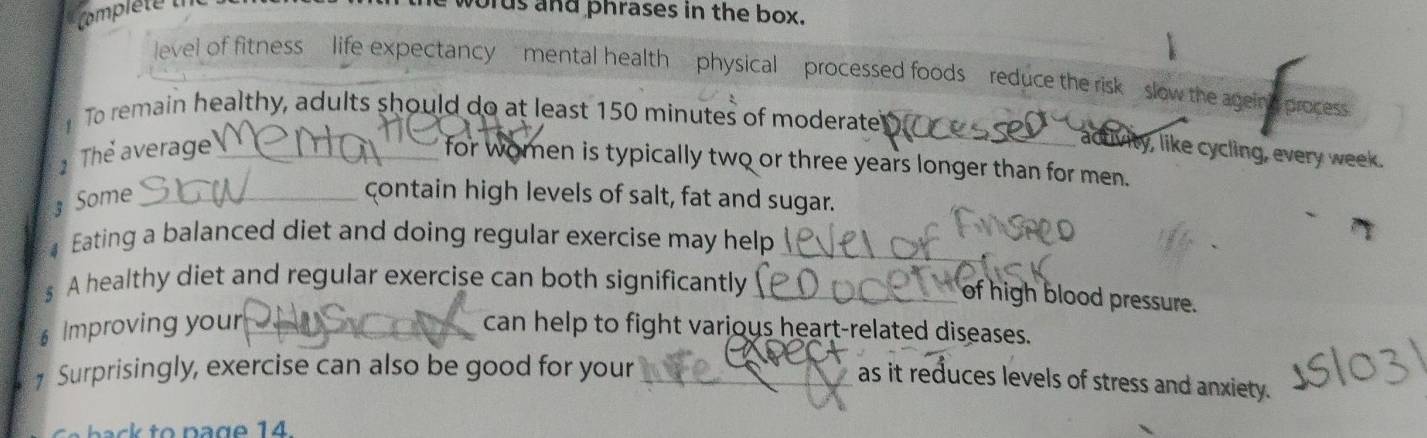 Complete the sentences with the words and phrases in the box.
level of fitness life expectancy mental health physical processed foods reduce the risk slow the ageing process
1 To remain healthy, adults should do at least 150 minutes of moderate processed activity, like cycling, every week.
2 The average mental health for women is typically two or three years longer than for men.
3 Some slow contain high levels of salt, fat and sugar.
4 Eating a balanced diet and doing regular exercise may help level of
5 A healthy diet and regular exercise can both significantly of high blood pressure.
6 Improving your can help to fight various heart-related diseases.
7 Surprisingly, exercise can also be good for your expect as it reduces levels of stress and anxiety.
Go back to page 14.